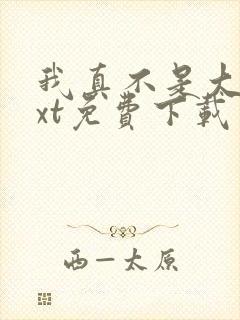 我真不是大
xt免费下载
西一太原